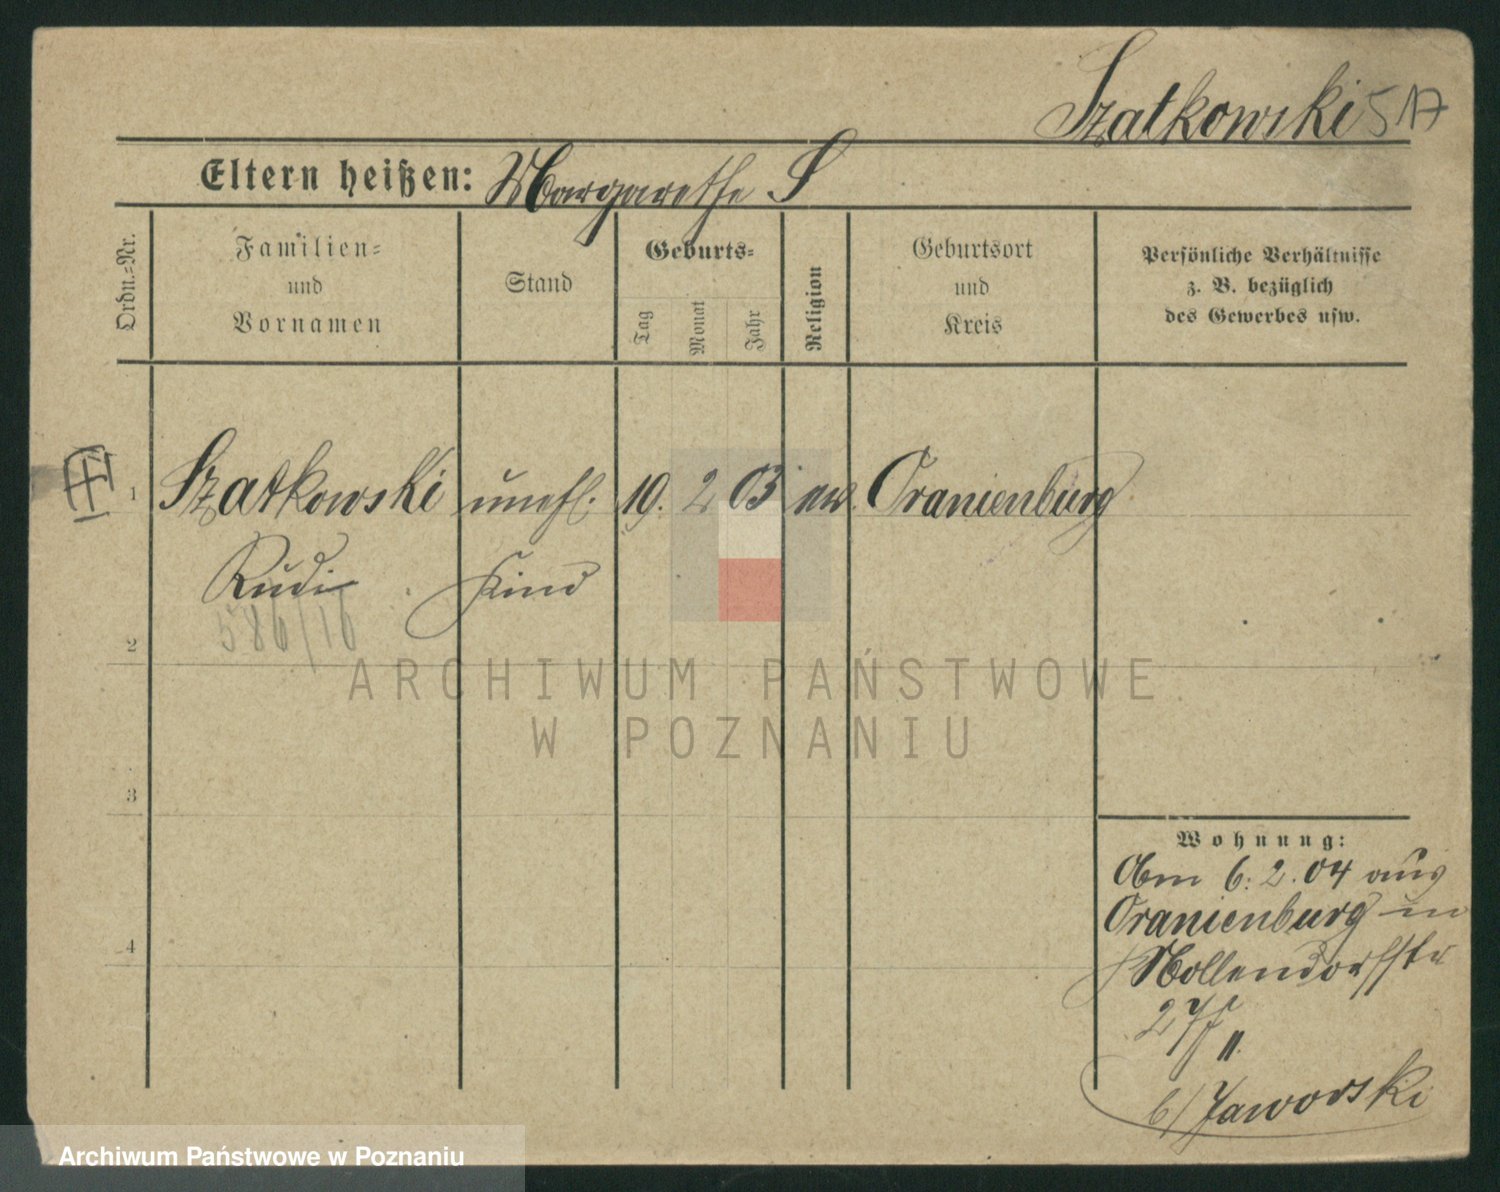 Szatkowski 517
Eltern heißen: Margarethe S
Ordn.-Nr.
Familien-
und
Vornamen
Stand
Geburts-
Tag
Monat
Jahr
Religion
Geburtsort
und
Kreis
Persönliche Verhältnisse
z. B. bezüglich
des Gewerbes usw.
1 Szatkowski unehl. 19. 2 03 ev. Oranienburg
Rudi Kind
586/16
2
ARCHIWUM PAŃSTWOWE
W POZNANIU
3
4
Wohnung:
Am 6. 2. 04 aus
Oranienburg in
Nollendorfstr
27 II.
b/ Jaworski
Archiwum Państwowe w Poznaniu